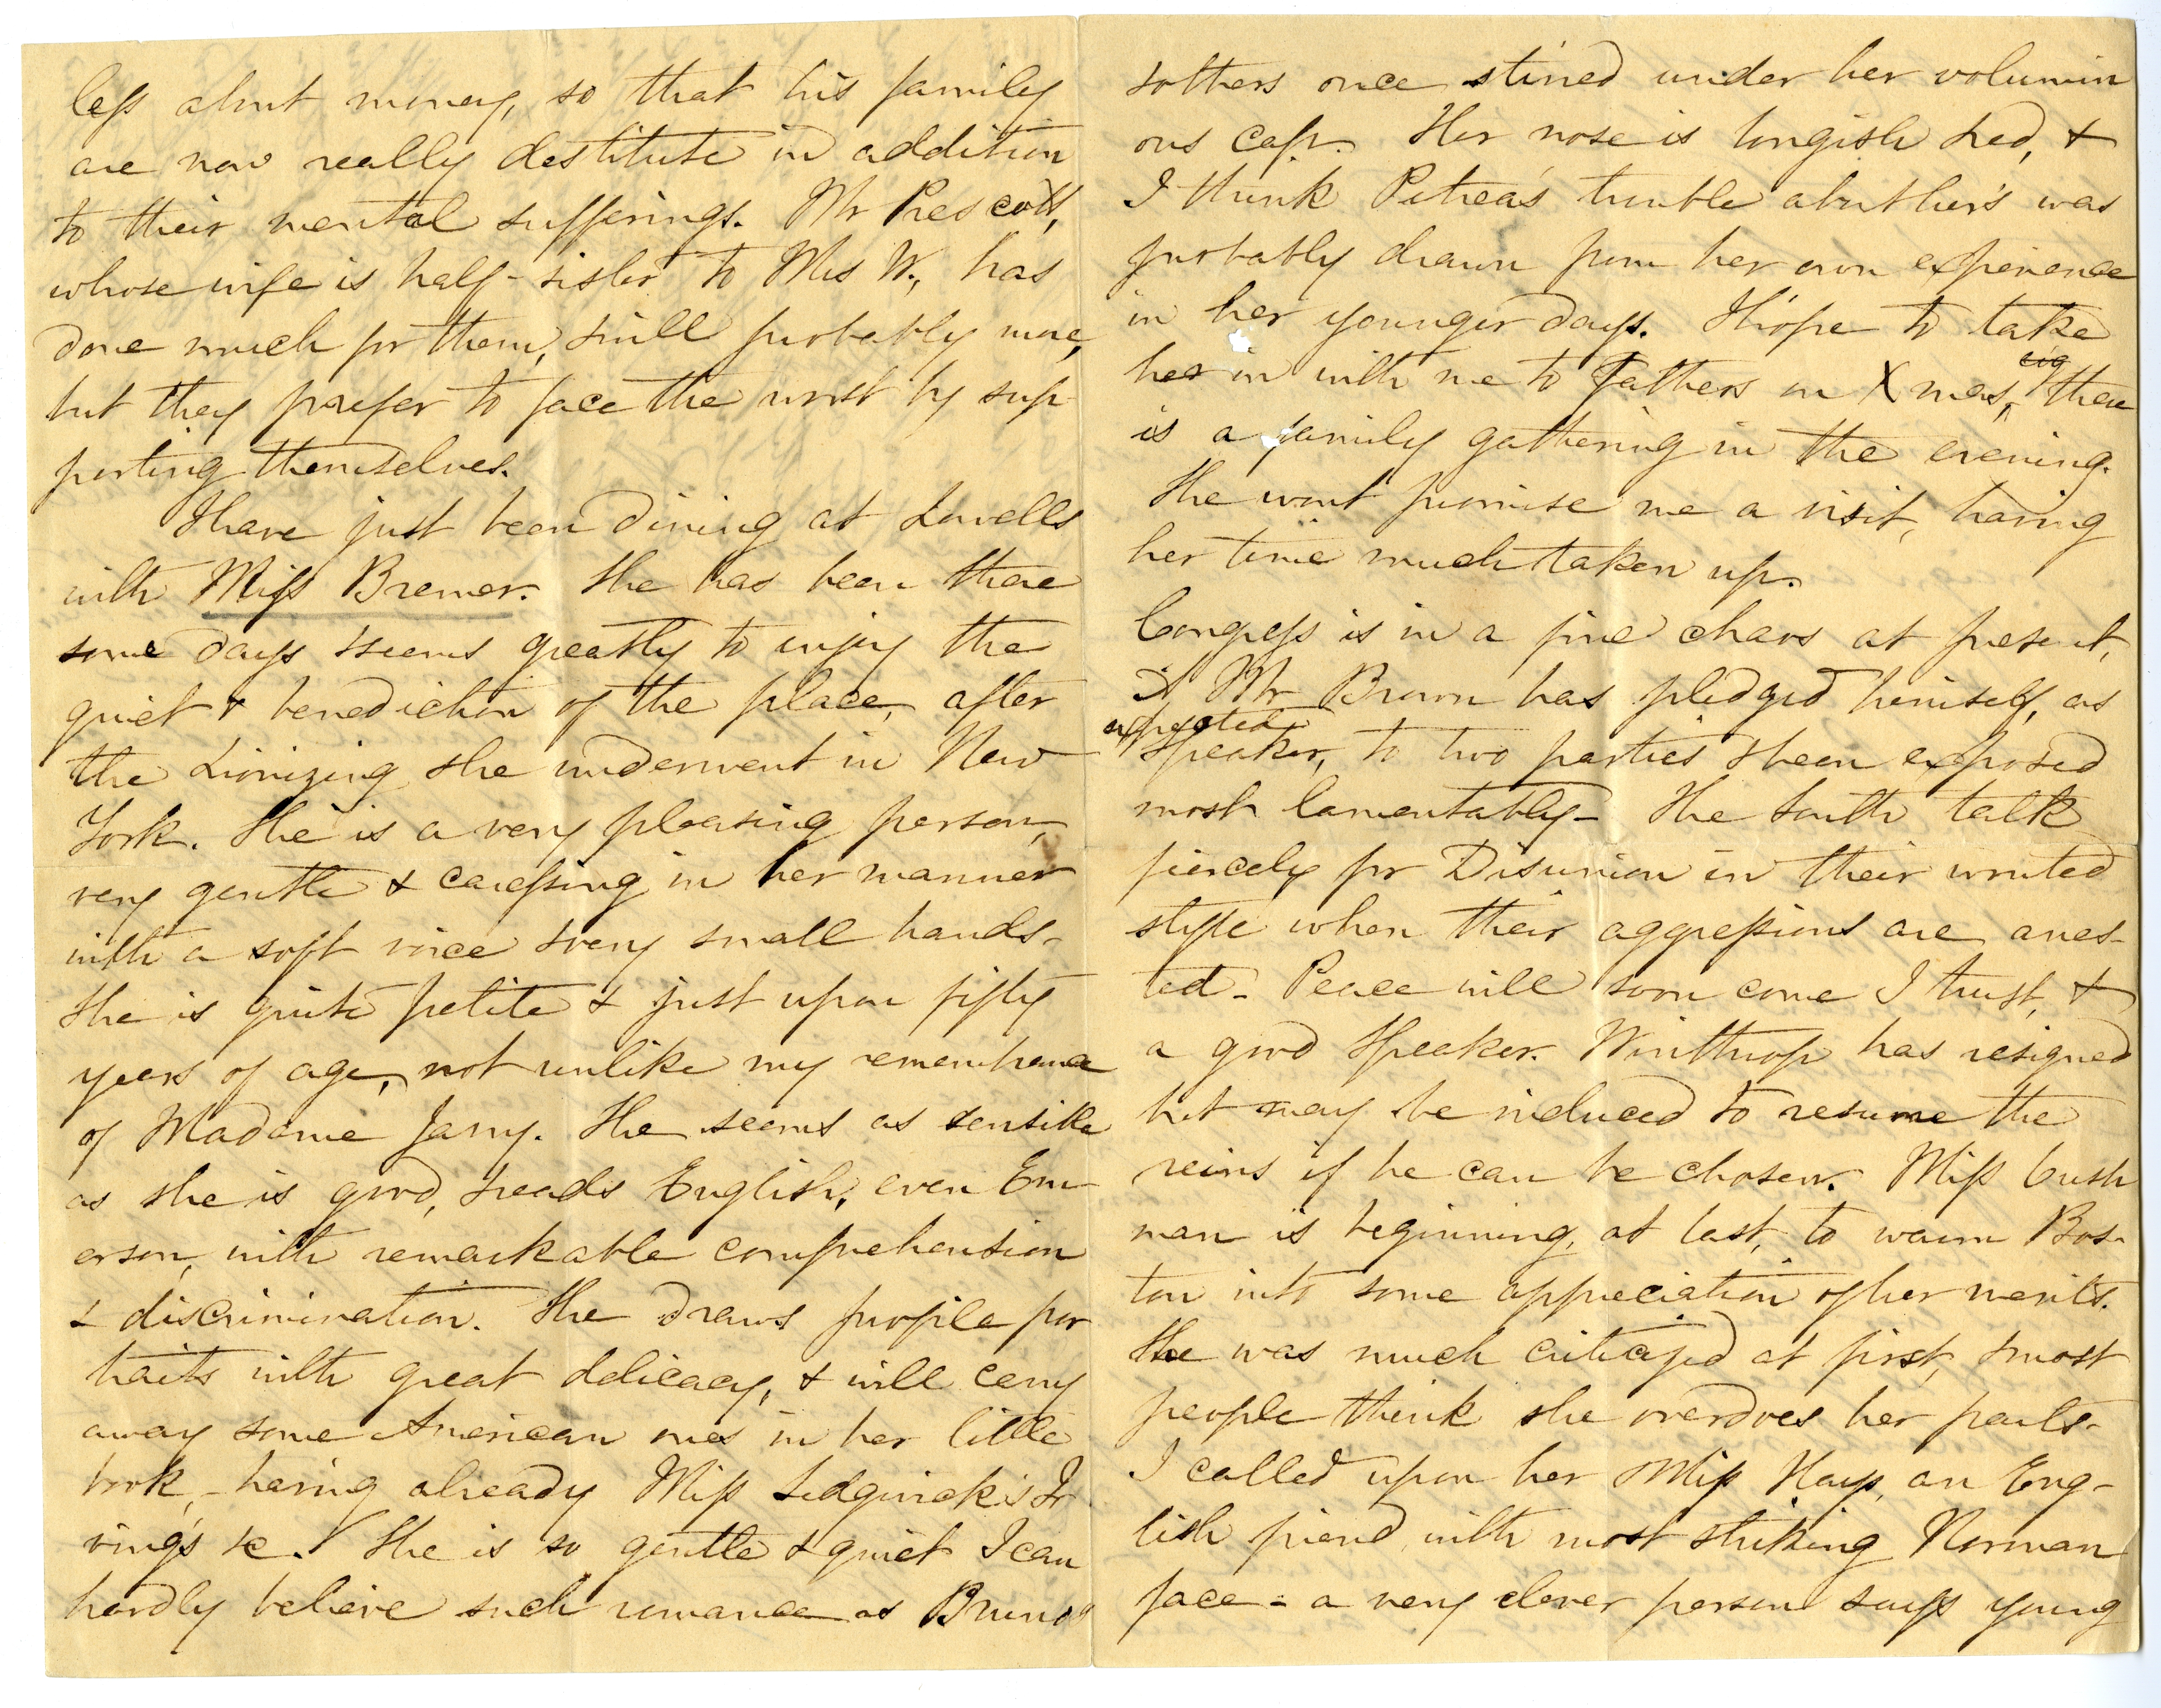 less about money, so that his family
are now really destitute in addition
to their mental sufferings. Mr Prescott,
whose wife is half-sister to Mrs W., has
done much for them, & will probably more,
but they prefer to face the worst by sup-
porting themselves.
I have just been dining at Lowells
with Miss Bremer. She has been there
some days & seems greatly to enjoy the
quiet & benediction of the place, after
the Lionizing she underwent in New
York. She is a very pleasing person,
very gentle & caressing in her manner
with a soft voice & very small hands-
She is quite petite & just upon fifty
years of age, not unlike my remembrance
of Madame Jarry. She seems as sensible
as she is good, & reads English, even Em-
erson, with remarkable comprehension
& discrimination. She draws profile por
traits with great delicacy, & will carry
away some American ones in her little
book, - having already Miss Sedgwick's Ir
ving's &c. She is so gentle & quiet I can
hardly believe such romance as Brunos
& others once stirred under her volumin
ous cap. Her nose is longish & red, &
I think Petrea's trouble about hers was
probably drawn from her own experience
in her younger days. I hope to take
her in with me to Fathers on Xmas, there
is a family gathering in the evening.
She wont promise me a visit, having
her time much taken up.
Congress is in a fine chaos at present,
& Mr Brown has pledged himself, as
expected
Speaker, to two parties & been exposed
most lamentably- The South talk
fiercely for Disunion in their wonted
style when their aggressions are arres-
ted- Peace will soon come I trust, &
a good Speaker. Winthrop has resigned
but may be induced to resume the
reins if he can be chosen. Miss Cush
man is beginning, at last, to warm Bos-
ton into some appreciation of her merits.
She was much criticized at first, & most
people think she overdoes her parts-
I called upon her & Miss Hays, an Eng-
lish friend, with most striking Norman
face - a very clever person says young